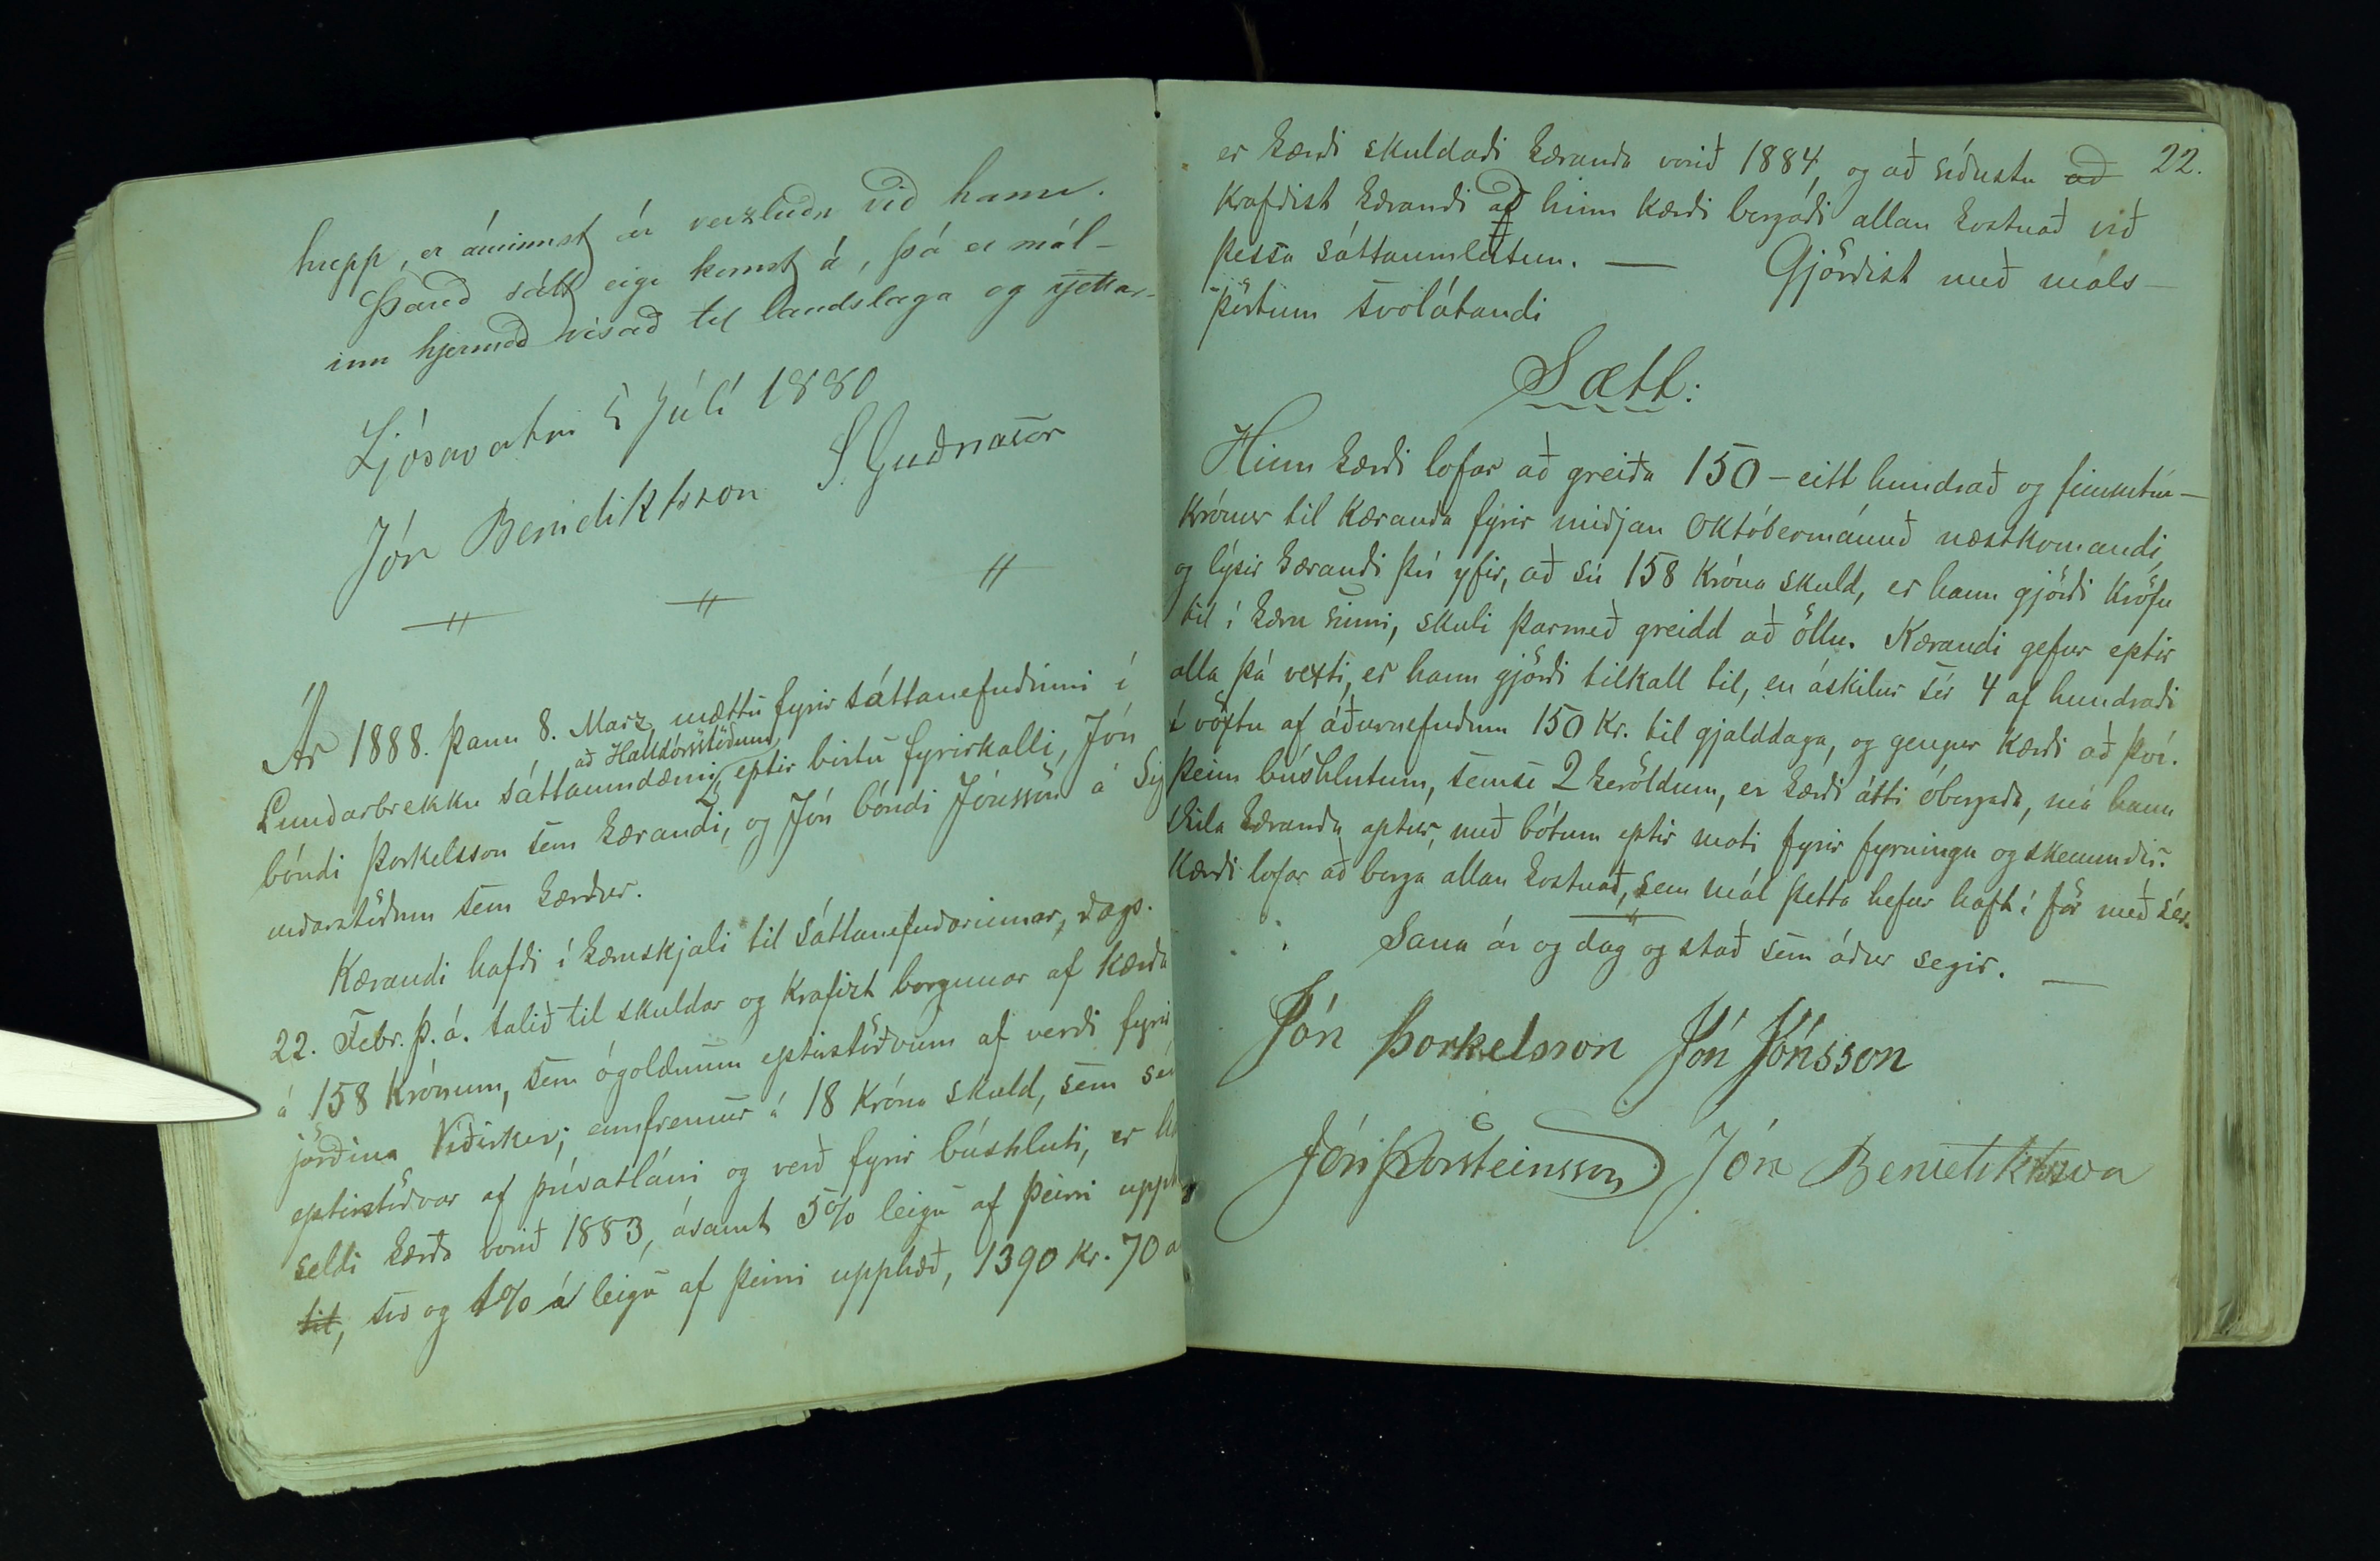 hrepp, er áminnst ár verzluðu við hann.
Þareð sátt eigi komst á, þá er mál-
inu hjermeð vísað til landslaga og rjettar.
Ljósavatni 5 Júlí 1880
Jón Benidiktsson S. Guðnason
Ár 1888. þann 8. Marz, mættu fyrir sáttanefndinni í
að Halldórsstöðum
Lundarbrekku sáttaumdæmi, eptir birtu fyrirkalli, Jón
bóndi Þorkelsson sem kærandi, og Jón bóndi Jónsson á Sig
urðarstöðum sem kærður.
Kærandi hafði í kæruskjali til sáttanefndarinnar, dags.
22. Febr. þ. á. talið til skuldar og krafizt borgunar af kærða
á 158 krónum, sem ógoldnum eptirstöðvum af verði fyrir
jörðina Víðirker; ennfremur á 18 króna skuld, sem séu
eptirstöðvar af prívatláni og verð fyrir búshluti, er
seldi kærða vorið 1883, ásamt 5% leigu af þeirri upph
tit, svo og 1% á leigu af þeirri upphæð, 1390 kr. 70 a
22.
er kærði skuldaði kæranda vorið 1884, og að síðustu að
krafðist kærandi að hinn kærði borgaði allan kostnað við
þessa sáttaumleitun. — Gjörðist með máls-
pörtum svolátandi
Sætt:
Hinn kærði lofar að greiða 150 - eitt hundrað og fimmtíu -
krónur til kæranda fyrir miðjan Októbermánuð næstkomandi,
og lýsir kærandi því yfir, að sú 158 króna skuld, er hann gjörði kröfu
til í kæru sinni, skuli þarmeð greidd að öllu. Kærandi gefur eptir
alla þá vexti, er hann gjörði tilkall til, en áskilur sér 4 af hundraði
í vöxtu af áðurnefndum 150 Kr. til gjalddaga, og gengur kærði að því.
Þeim búshlutum, semsé 2 keröldum, er kærði átti óborgaða, má hann
skila kæranda aptur, með bótum eptir mati fyrir fyrningu og skemmdir.
Kærði lofar að borga allan kostnað, sem mál þetta hefur haft í för með sér.
Sama ár og dag og stað sem áður segir. —
Jón Þorkelsson Jón Jónsson
Jón Þorsteinsson Jón Benediktsson